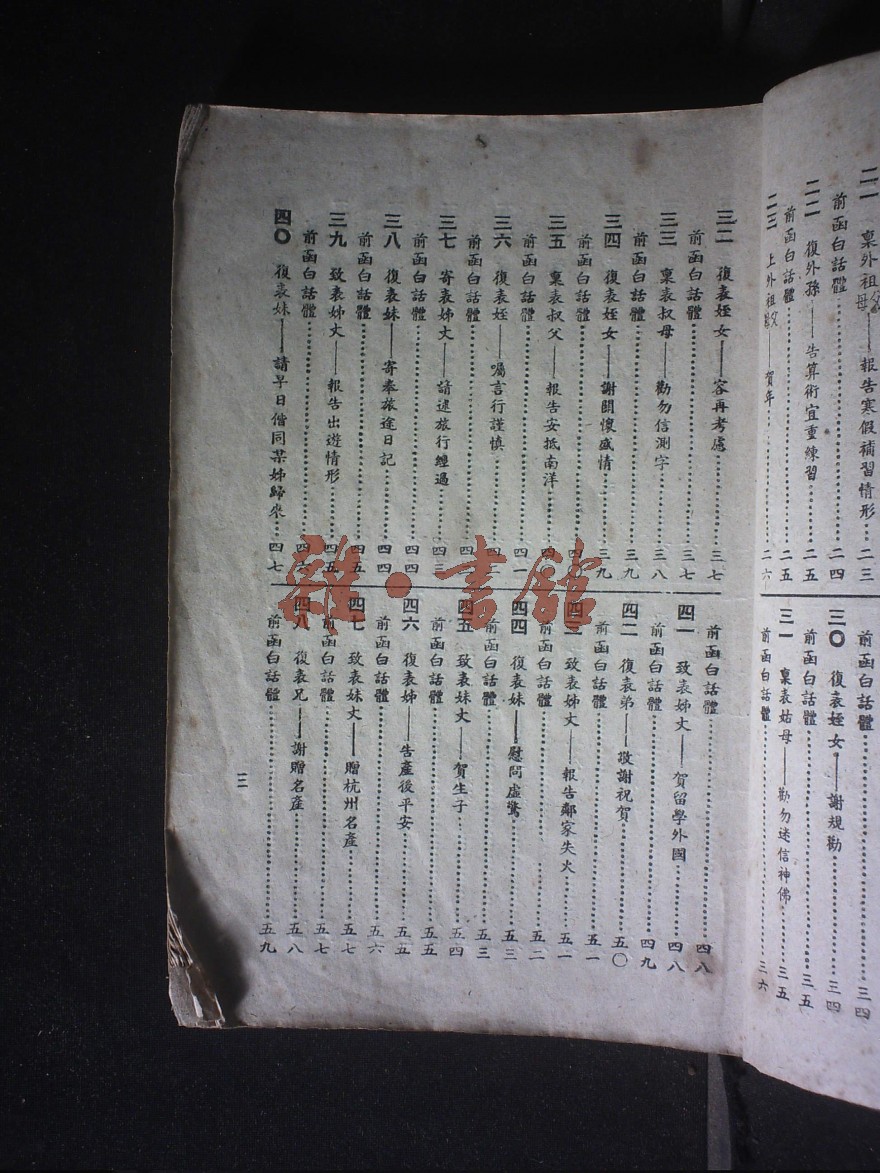 二一 稟外祖父母——報告寒假補習情形 二三
前函白話體 二四
二二 復外孫——告算術宜重練習 二五
前函白話體 二五
二三 上外祖父母——賀年 二六
前函白話體 三四
三〇 復表姪女——謝規勸 三四
前函白話體 三五
三一 稟表姑母——勸勿迷信神佛 三五
前函白話體 三六
三二 復表姪女——容再考慮 三七
前函白話體 三七
三三 稟表叔母——勸勿信測字 三八
前函白話體 三九
三四 復表姪女——謝關懷盛情 三九
前函白話體
三五 稟表叔父——報告安抵南洋
前函白話體 四一
三六 復表姪——囑言行謹慎
前函白話體
三七 寄表姊丈——請述旅行經過 四三
前函白話體 四四
三八 復表妹——寄奉旅途日記 四四
前函白話體 四五
三九 致表姊丈——報告出遊情形 四五
前函白話體 四六
四〇 復表妹——請早日偕同某姊歸來 四七
前函白話體 四八
四一 致表姊丈——賀留學外國 四八
前函白話體 四九
四二 復表弟——敬謝祝賀 五〇
前函白話體 五一
四三 致表姊丈——報告鄰家失火 五一
前函白話體 五二
四四 復表妹——慰問虛驚 五三
前函白話體 五三
四五 致表妹丈——賀生子 五四
前函白話體 五五
四六 復表姊——告產後平安 五五
前函白話體 五六
四七 致表妹丈——贈杭州名產 五七
前函白話體 五七
四八 復表兄——謝贈名產 五八
前函白話體 五九
三
雜·書館